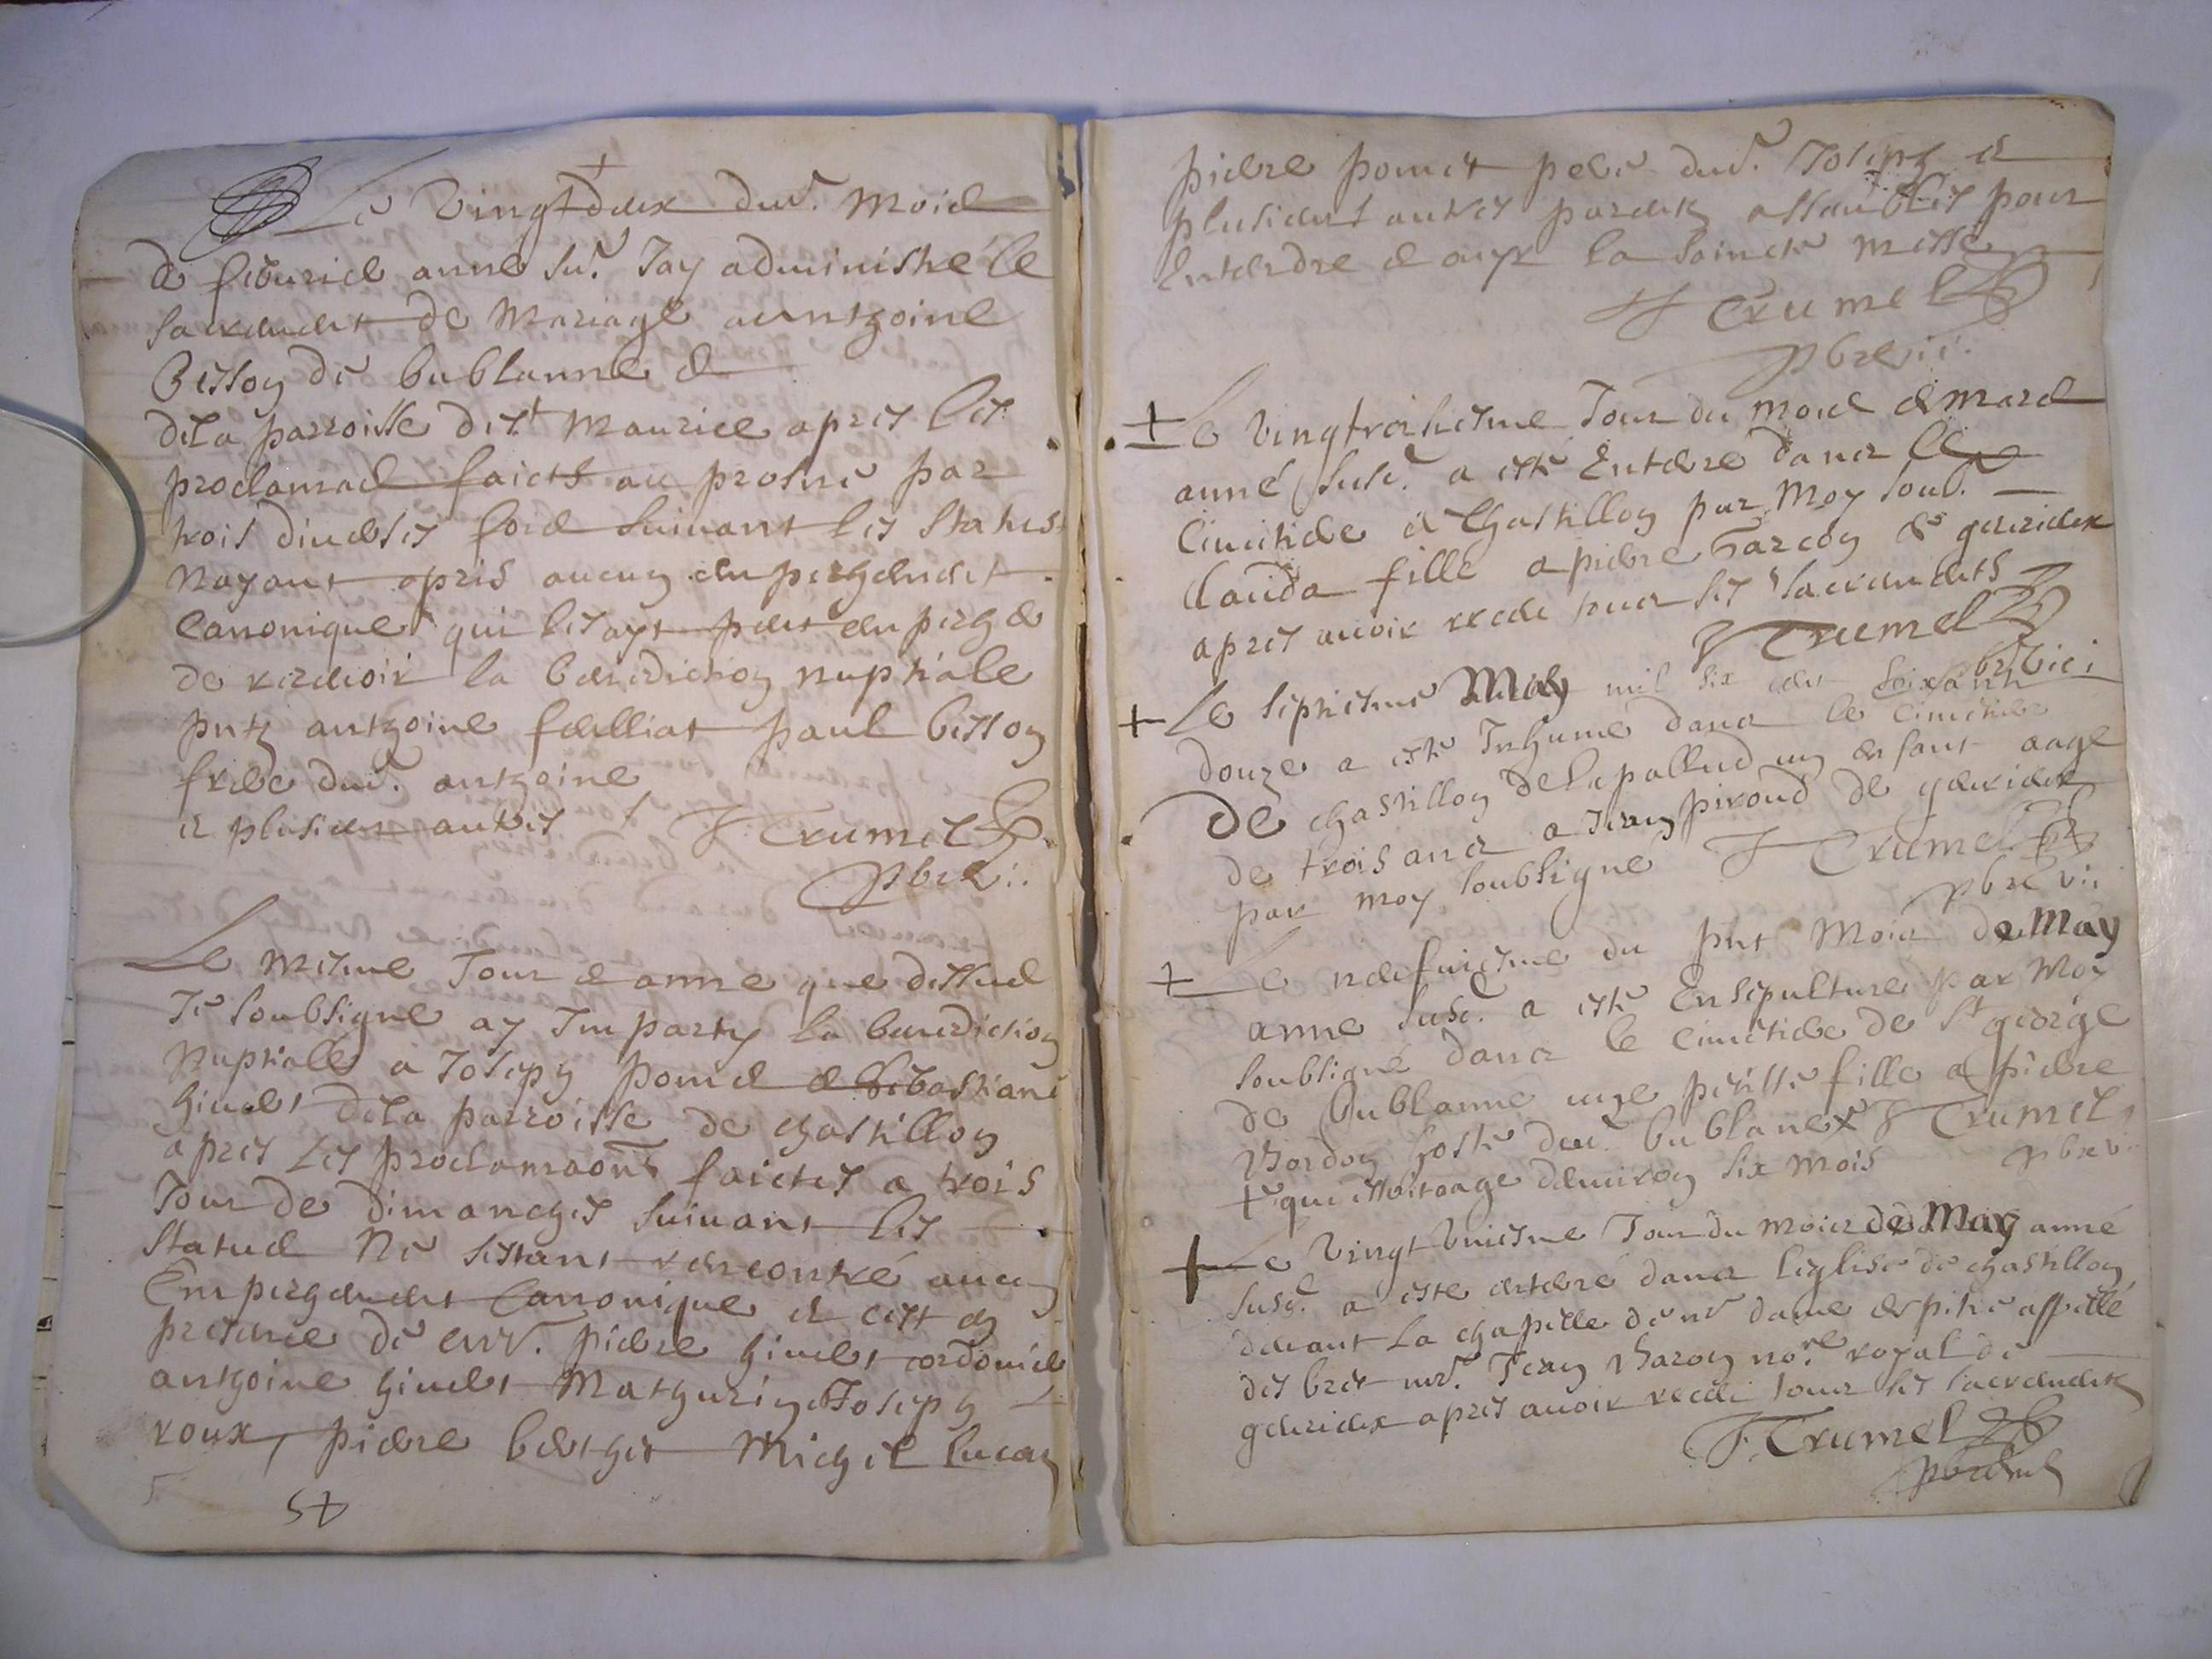 Le Vingtdeux dud. mois
de febvrier anne sud. Jay administré le
sacrement de Mariage a anthoine
bisson de bublanne &
dela parroisse de st Maurice apres les
proclamaõns faictes au prosne par
trois diverses fois suivant les statuts
Nayant apris aucun empeschement
Canonique qui les ayt peut empescher
de recevoir la benediction nuptiale
pntz anthoine faelliat paul bisson
frere dud. anthoine
et plusieurs autres J Crumel
pbre vi.
Le mesme Jour & anne que dessus
Je soubsigne ay Imparty la benediction
Nuptialle a Joseph pomet & sebastiane
ginet dela parroisse de chastillon
apres les proclamaõns faictes a trois
Jour de dimanches suivant les
statuts Ne sestant rencontré aucun
Empeschement Canonique et cest en
presence de piere ginet cordonier
anthoine ginet Mathurin & Joseph
roux, piere berthet Michel lucan
piere pomet pere dud. Joseph et
plusieurs autres parents assemblés pour
Entendre & ouyr la saincte messe
J Crumel
pbre vi.
Le vingtroisiesme Jour du mois de mars
anné susd. a esté Enterré dans le
Cimitiere de Chastillon par Moy soub.
Clauda fille a piere garcon de genevieux
apres avoir receu tous ses sacrements
J Crumel
pbre vi.
Le septiesme May mil six cent soixante
douze a esté Inhumé dans le cimetiere
De chastillon delapallud un enfant aagé
de trois ans a Jean piroud de genevieux
par moy soubsigné J Crumel
pbre vi.
Le neufviesme du pnt Mois de May
anne susd. a esté Ensepulturé par Moy
soubsigné dans le cimetiere de st george
de bublanne une petitte fille a piere
bordon hoste dud. bublane J Crumel
qui estoit aage denviron six mois pbre vi.
Le vingt huictme Jour du mois de May anné
susd. a este enterré dans leglise de chastillon
devant la chapelle de nr dame de pitié appellé
des bret mr. Jean baron nore royal de
genevieux apres avoir receu tous ses sacrements
J. Crumel
pbre vi.